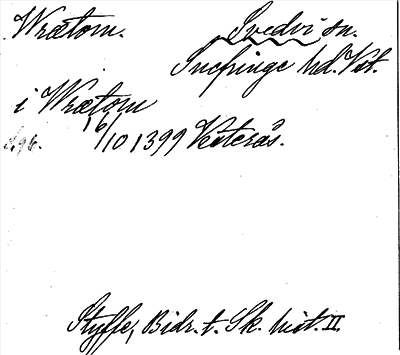 Wrætom. Svedvi sn.
Snefringe hd. Vst.
i Wrætom
16/10 1399 Västerås.
Styffe, Bidr. t. Sk. hist. II.